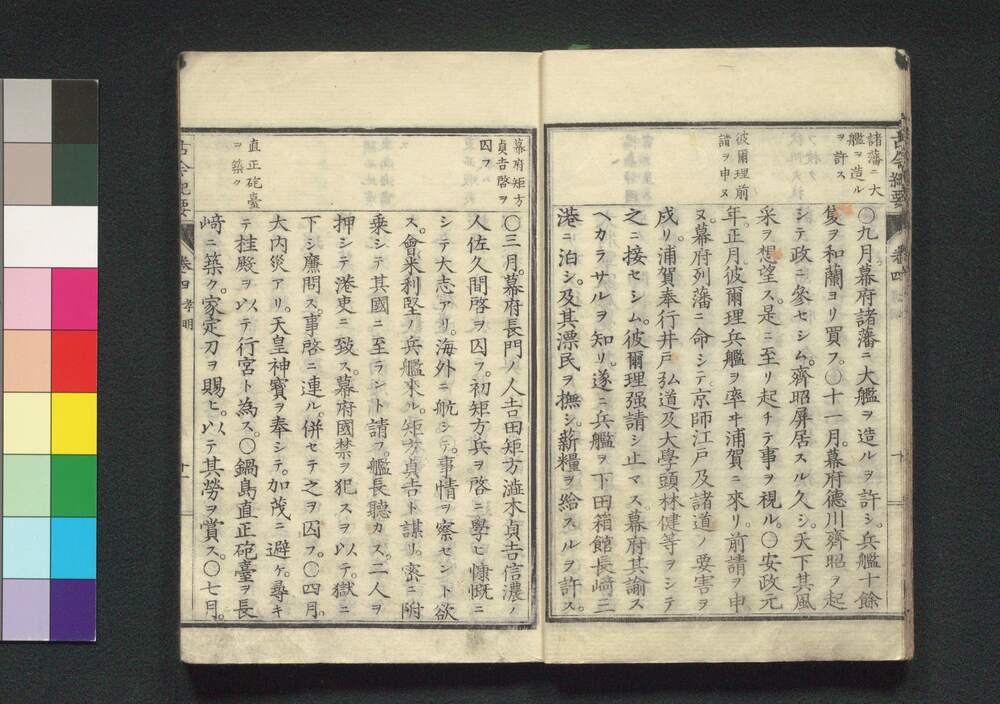 古今紀要　卷四
諸藩ニ大
艦ヲ造ル
ヲ許ス
彼爾理前
請ヲ申ヌ
〇九月幕府諸藩ニ大艦ヲ造ルヲ許シ。兵艦十餘
隻ヲ和蘭ヨリ買フ。〇十一月。幕府德川齊昭ヲ起
シテ政ニ參セシム。齊昭屏居スル久シ。天下其風
采ヲ想望ス。是ニ至リ起チテ事ヲ視ル。〇安政元
年。正月。彼爾理兵艦ヲ率ヰ浦賀ニ來リ。前請ヲ申
ヌ。幕府列藩ニ命シテ京師江戸及諸道ノ要害ヲ
戍リ。浦賀奉行井戸弘道及大學頭林健等ヲシテ
之ニ接セシム。彼爾理强請シ止マス。幕府其諭ス
ヘカラサルヲ知リ。遂ニ兵艦ヲ下田箱館長崎三
港ニ泊シ。及其漂民ヲ撫シ。薪糧ヲ給スルヲ許ス。
幕府矩方
貞吉啓ヲ
囚フ
直正砲臺
ヲ築ク
〇三月。幕府長門ノ人吉田矩方澁木貞吉信濃ノ
人佐久間啓ヲ囚フ。初矩方兵ヲ啓ニ學ヒ慷慨ニ
シテ大志アリ。海外ニ航シテ。事情ヲ察セント欲
ス。會米利堅ノ兵艦來ル。矩方貞吉ト謀リ。密ニ附
乗シテ其國ニ至ラント請フ。艦長聽カス。二人ヲ
押シテ港吏ニ致ス。幕府國禁ヲ犯スヲ以テ。獄ニ
下シ廉問ス。事啓ニ連ル。併セテ之ヲ囚フ。〇四月。
大内災アリ。天皇神寳ヲ奉シテ。加茂ニ避ケ。尋キ
テ桂殿ヲ以テ行宮ト為ス。〇鍋島直正砲臺ヲ長
﨑ニ築ク。家定刀ヲ賜ヒ。以テ其勞ヲ賞ス。〇七月。
古今紀要　卷四　孝明　十一